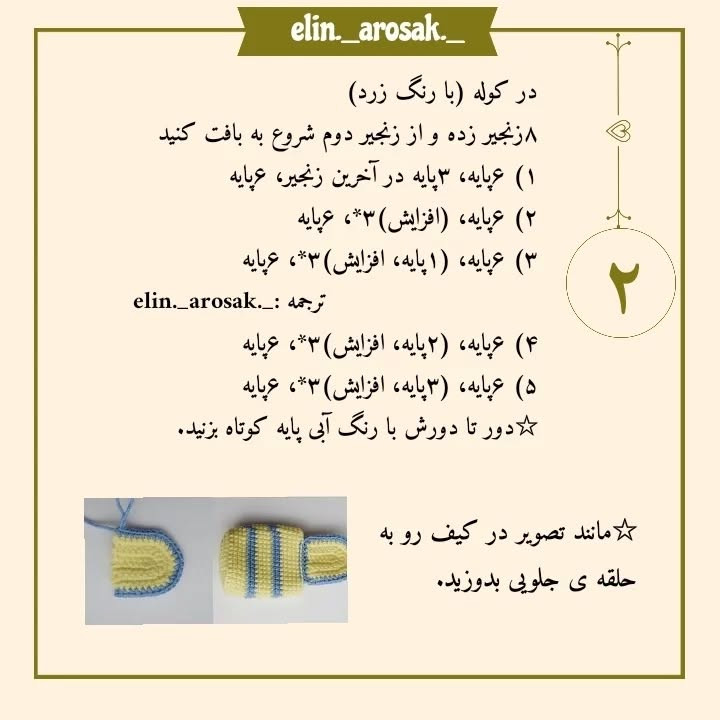 elin._arosak._
در کوله (با رنگ زرد)
۸زنجیر زده و از زنجیر دوم شروع به بافت کنید
۱) ۶پایه، ۳پایه در آخرین زنجیر، ۶پایه
۲) ۶پایه، (افزایش)۳*، ۶پایه
۳) ۶پایه، (۱پایه، افزایش)۳*، ۶پایه
ترجمه :_.elin._arosak
۴) ۶پایه، (۲پایه، افزایش)۳*، ۶پایه
۵) ۶پایه، (۳پایه، افزایش)۳*، ۶پایه
☆دور تا دورش با رنگ آبی پایه کوتاه بزنید.
۲
☆مانند تصویر در کیف رو به
حلقه ی جلویی بدوزید.